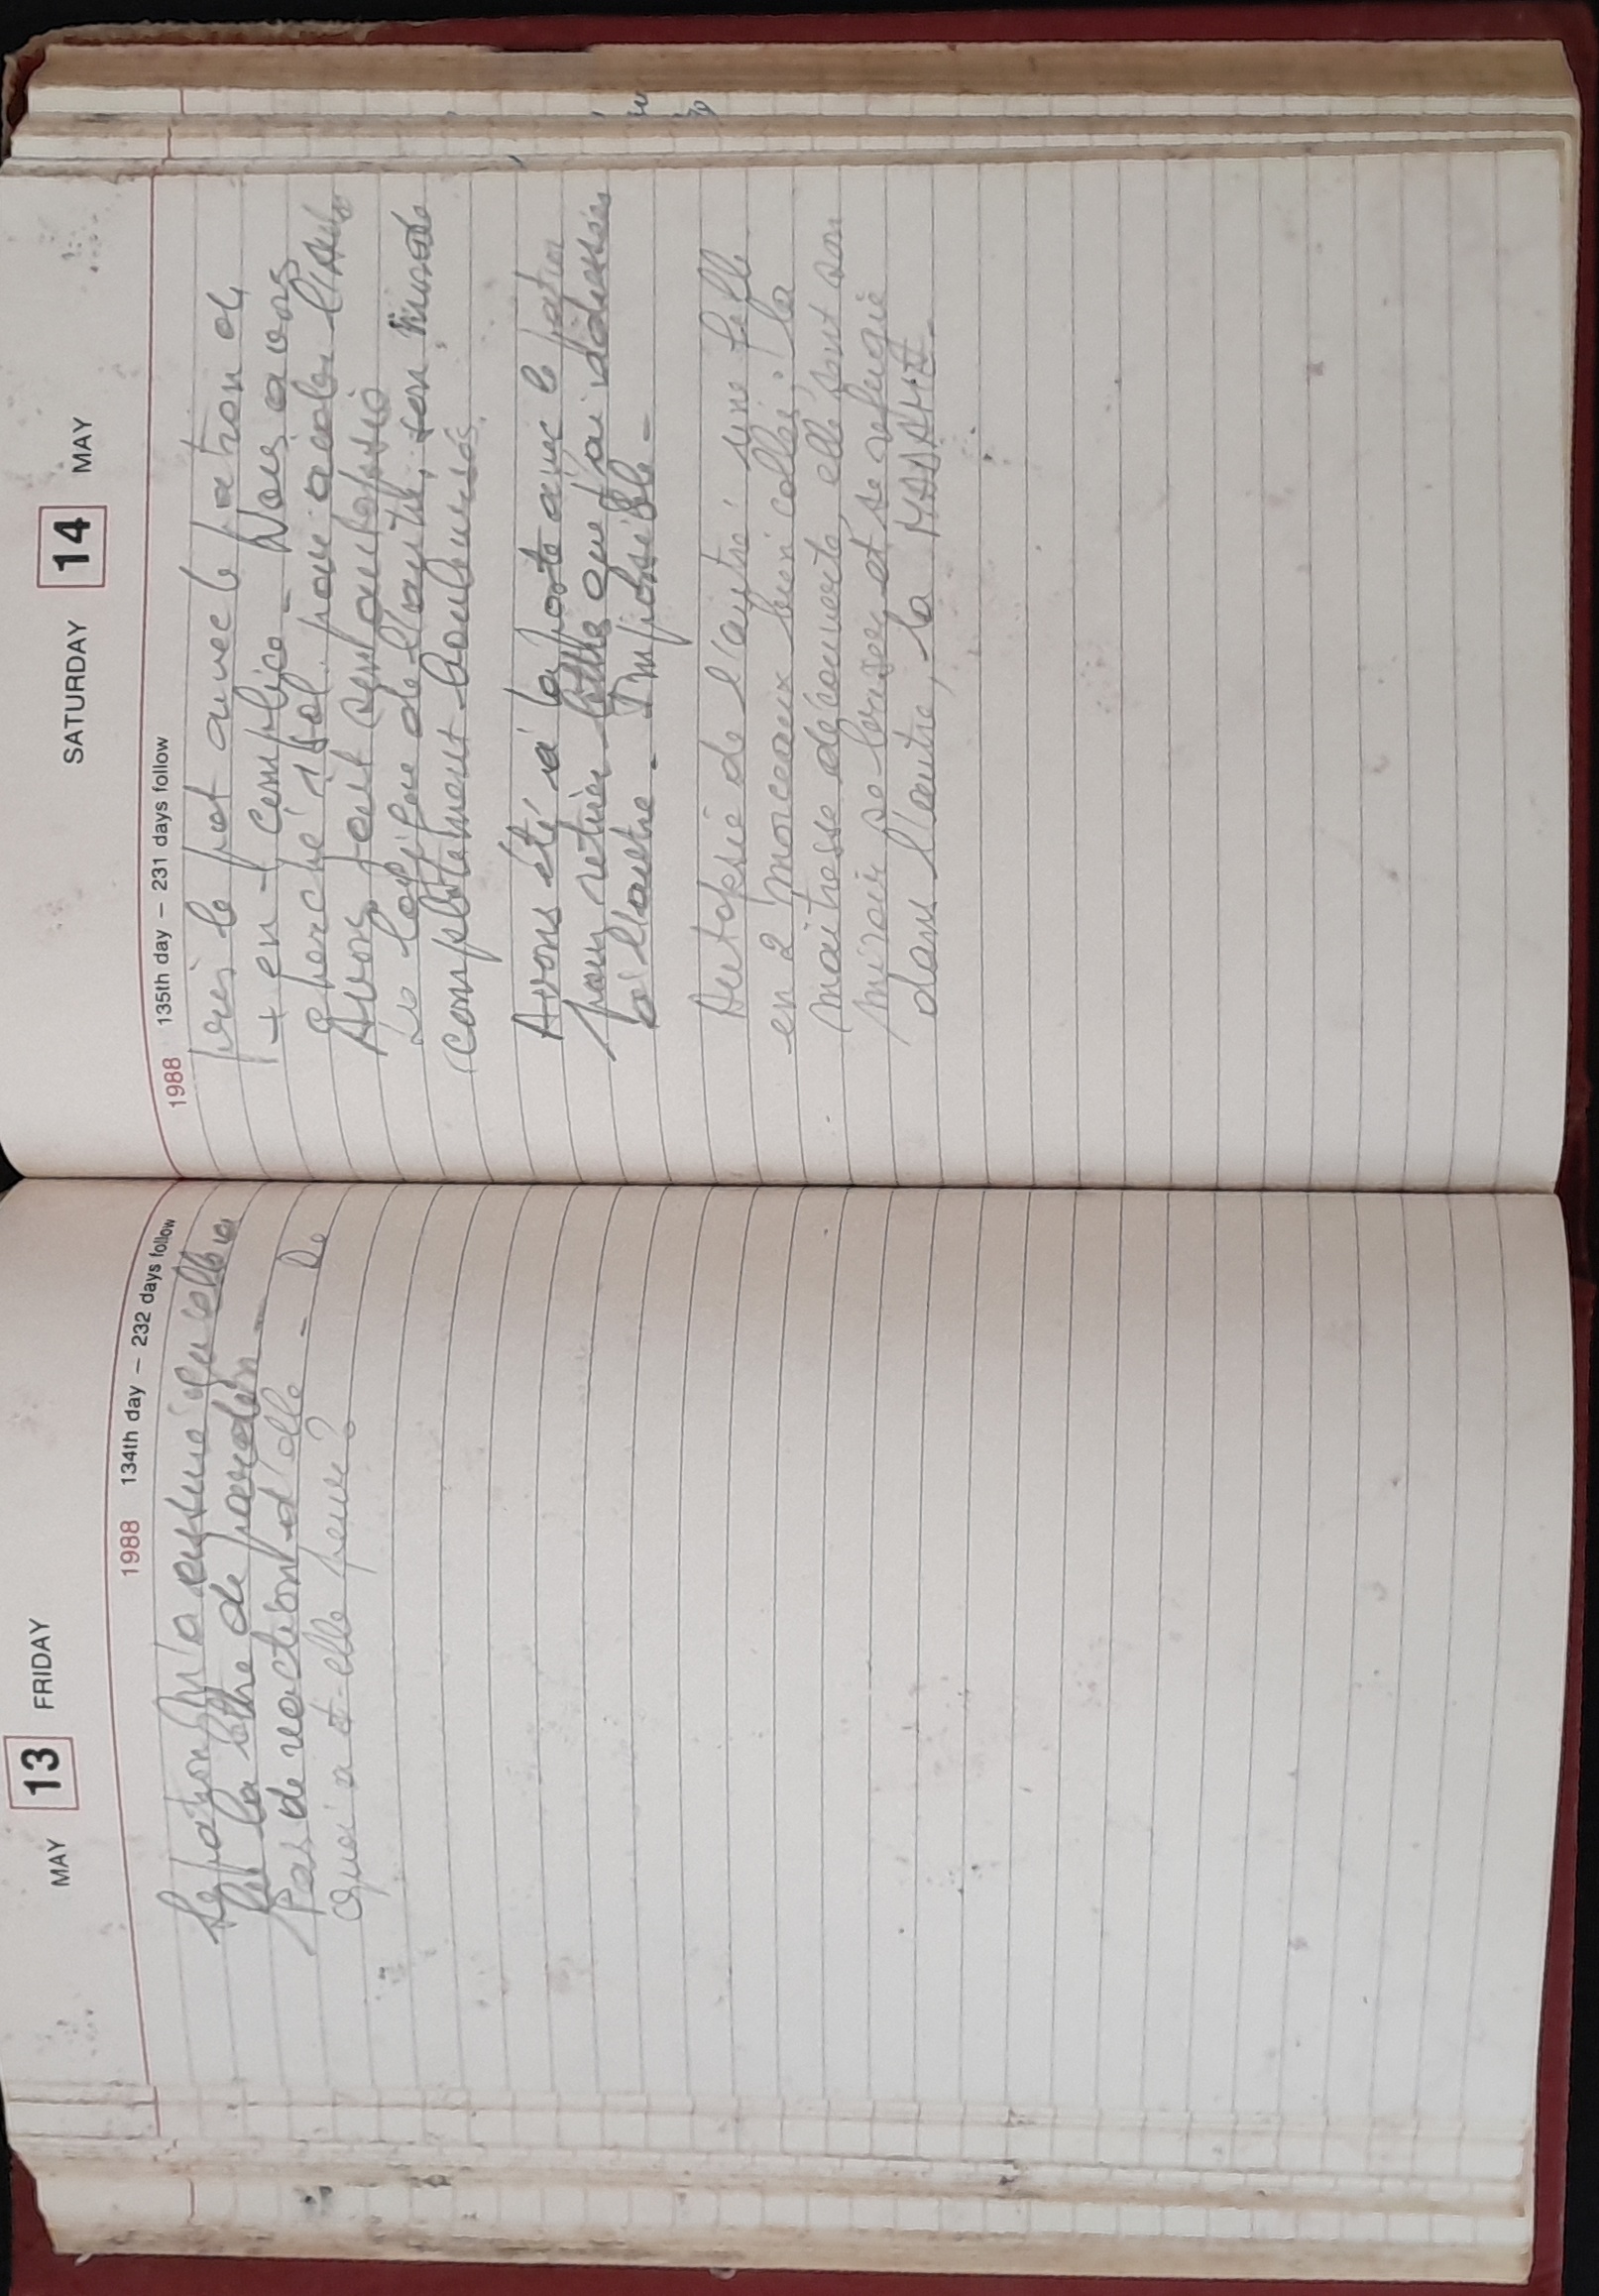 MAY 13 FRIDAY
1988 134th day – 232 days follow
Le patron m'a assuré qu'elle a
lu la lettre de pardon -
Pas de réaction d'elle - De
quoi a t-elle peur?
SATURDAY 14 MAY
1988 135th day – 231 days follow
pris le pot avec le patron de
+ en + complice - Nous avons
cherché 1 sol. pour aider l'Autre
Avons fait son autopsie
le logique de l'autre, son monde
complètement bouleversés.
Avons été à la poste avec le patron
pour retirer lettre que j'ai adressée
à l'autre - Impossible -
Autopsie de l'autre: une fille
en 2 morceaux bien collés: la
maîtresse découverte, elle sent son
miroir se briser et se réfugie
dans l'autre, la MADAME.